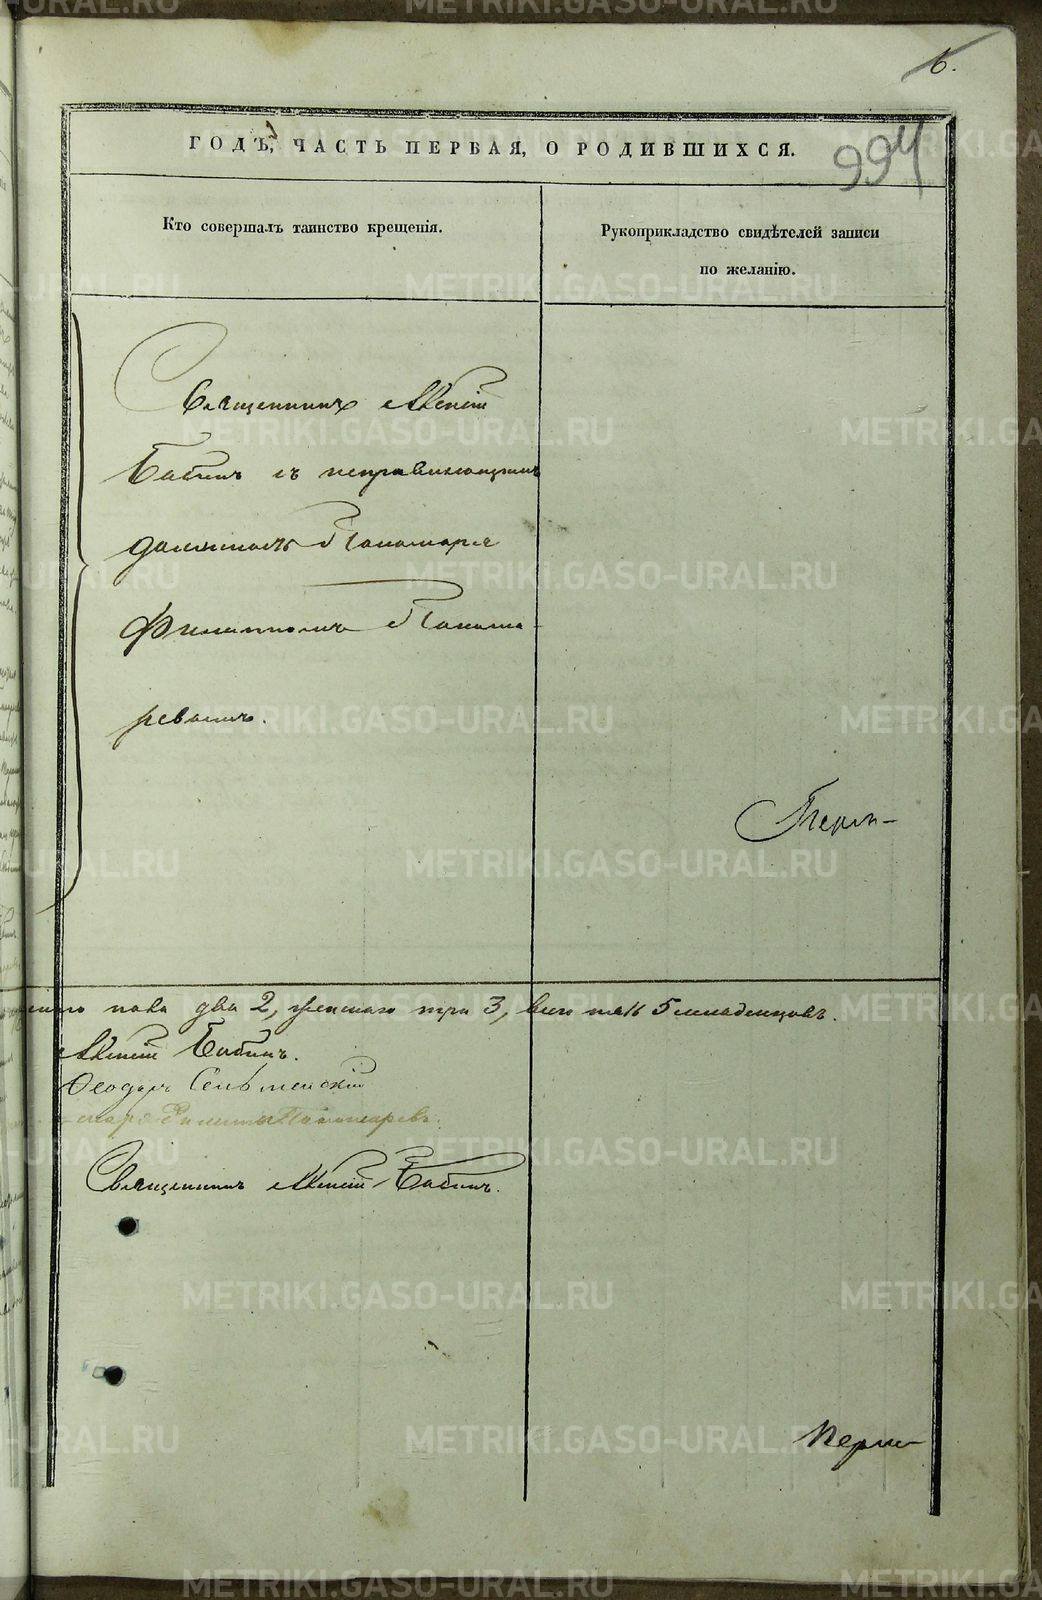 6.
994
ГОДЪ, ЧАСТЬ ПЕРВАЯ, О РОДИВШИХСЯ.
Кто совершалъ таинство крещенія.
Рукоприкладство свидѣтелей записи
по желанію.
Священникъ Алексій
Бабинъ съ исправляющимъ
должность Пономаря
Филиппомъ Понома-
ревымъ.
пола два 2, женскаго три 3, всего 5 младенцовъ.
Алексій Бабинъ.
Феодоръ
Филиппъ Пономаревъ.
Священникъ Алексій Бабинъ.
METRIKI.GASO-URAL.RU